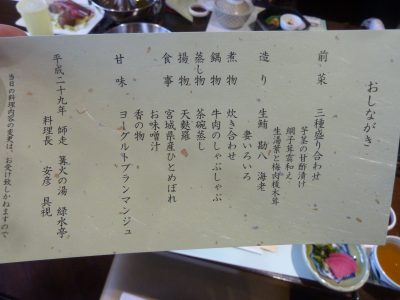 おしながき
前菜 三種盛り合わせ
芋茎の甘酢漬け
網子茸雲和え
生湯葉と梅肉榎木茸
造り 生鮪 勘八 海老
妻いろいろ
煮物 炊き合わせ
鍋物 牛肉のしゃぶしゃぶ
蒸し物 茶碗蒸し
揚物 天麩羅
食事 宮城県産ひとめぼれ
お味噌汁
香の物
甘味 ヨーグルトブランマンジュ
平成二十九年 師走 篝火の湯 緑水亭
料理長 安彦 具視
当日の料理内容の変更は、お受け致しかねますので